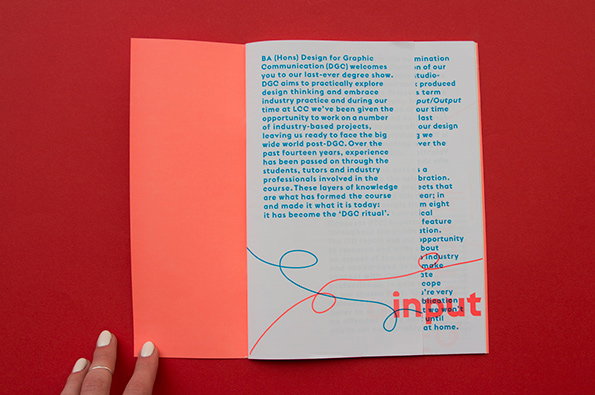 BA (Hons) Design for Graphic
Communication (DGC) welcomes
you to our last-ever degree show.
DGC aims to practically explore
design thinking and embrace
industry practice and during our
time at LCC we've been given the
opportunity to work on a number
of industry-based projects,
leaving us ready to face the big
wide world post-DGC. Over the
past fourteen years, experience
has been passed on through the
students, tutors and industry
professionals involved in the
course. These layers of knowledge
are what has formed the course
and made it what it is today:
it has become the 'DGC ritual'.
mination
n of our
tudio-
produced
s term
put/Output
our time
last
our design
g we
ver the
s a
bration.
ects that
ear; in
m eight
ical
feature
ation.
pportunity
bout
industry
make
ate
cope
're very
blication
t we won't
until
at home.
input